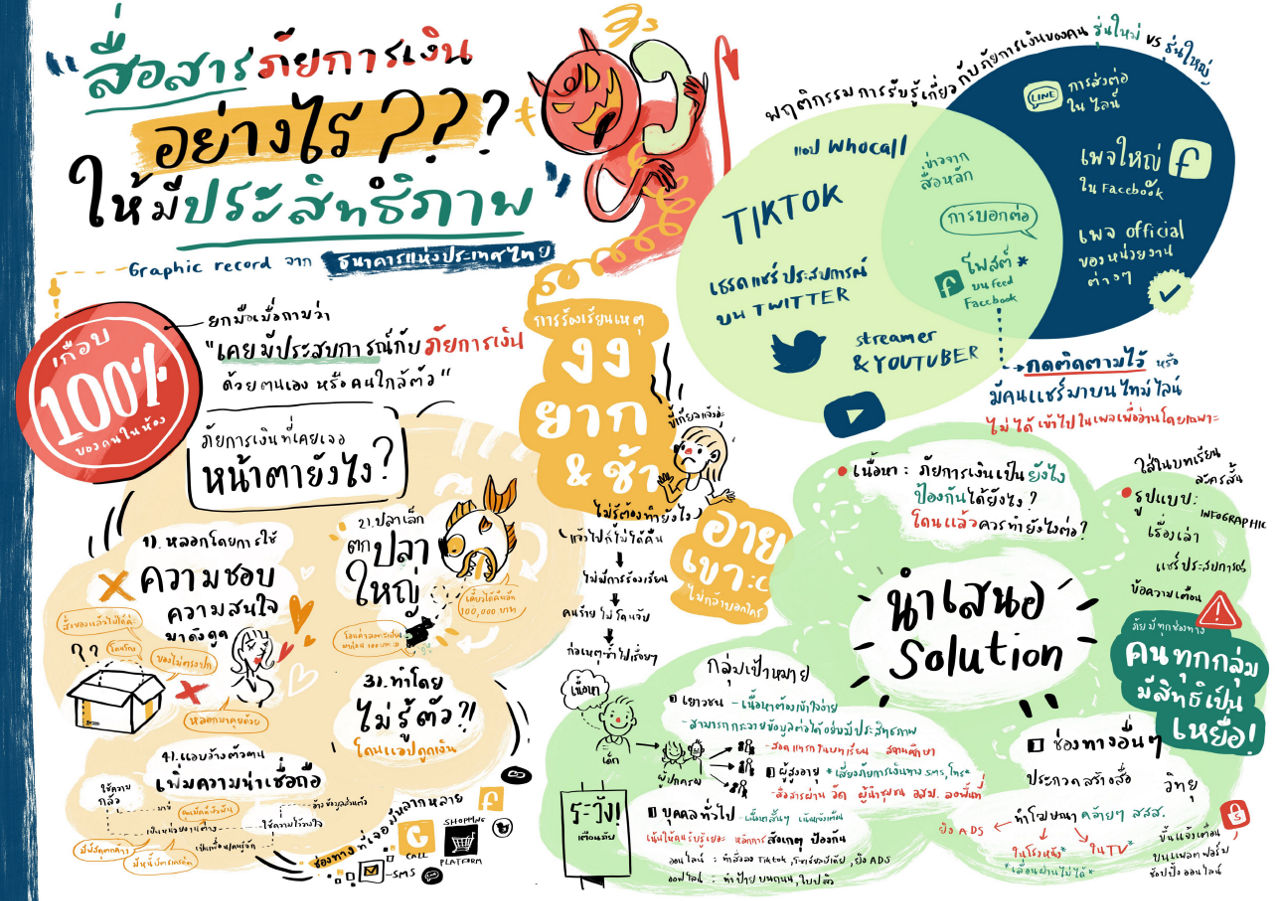 "สื่อสารภัยการเงิน
อย่างไร???
ให้มีประสิทธิภาพ"
Graphic record จาก ธนาคารแห่งประเทศไทย
เกือบ
100%
ของคนในห้อง
ยกมือเมื่อถามว่า
"เคยมีประสบการณ์กับภัยการเงิน
ด้วยตนเอง หรือคนใกล้ตัว"
ภัยการเงินที่เคยเจอ
หน้าตายังไง?
1). หลอกโดยการใช้
ความชอบ
ความสนใจ
มาดึงดูด
สั่งของแล้วไม่ได้ค่ะ
โดนโกง
ของไม่ตรงปก
??
หลอกมาคุยด้วย
2). ปลาเล็ก
ตกปลา
ใหญ่
เดี๋ยวได้คืนอีก
100,000 บาท
3). ทำโดย
ไม่รู้ตัว?!
โดนแอปดูดเงิน
4). แอบอ้างตัวตน
เพิ่มความน่าเชื่อถือ
ใช้ความ
กลัว
เป็นหน่วยงานต่างๆ
มีพัสดุตกค้าง
มีหนี้บัตรเครดิต
อ้างข้อมูลส่วนตัว
ใช้ความไว้วางใจ
เป็นเพื่อนคนรู้จัก
ช่องทางที่เจอมันหลากหลาย
CALL
SHOPPING
PLATFORM
SMS
การร้องเรียนเหตุ
งง
ยาก
& ช้า
ขี้เกียจแจ้งอะ
ไม่รู้ต้องทำยังไง
แจ้งไปก็ไม่ได้คืน
ไม่มีการร้องเรียน
คนร้ายไม่โดนจับ
ก่อเหตุซ้ำไปเรื่อยๆ
อาย
เขา :(
ไม่กล้าบอกใคร
พฤติกรรมการรับรู้เกี่ยวกับภัยการเงินของคน รุ่นใหม่ vs รุ่นใหญ่
แอป Whocall
TIKTOK
เธรดแชร์ประสบการณ์
บน TWITTER
streamer
& YOUTUBER
ข่าวจาก
สื่อหลัก
การบอกต่อ
โพสต์*
บน Feed
Facebook
LINE
การส่งต่อ
ใน ไลน์
เพจใหญ่
ใน Facebook
เพจ official
ของหน่วยงาน
ต่างๆ
กดติดตามไว้ หรือ
มีคนแชร์มาบนไทม์ไลน์
ไม่ได้เข้าไปในเพจเพื่ออ่านโดยเฉพาะ
นำเสนอ
Solution
เนื้อหา : ภัยการเงินเป็นยังไง
ป้องกันได้ยังไง?
โดนแล้วควรทำยังไงต่อ?
ใส่ในบทเรียน
ละครสั้น
รูปแบบ:
INFOGRAPHIC
เรื่องเล่า
แชร์ประสบการณ์
ข้อความเตือน
ภัยมีทุกช่องทาง
คนทุกกลุ่ม
มีสิทธิเป็น
เหยื่อ!
กลุ่มเป้าหมาย
เนื้อหา
เด็ก
ผู้ปกครอง
เยาวชน - เนื้อหาต้องเข้าใจง่าย
- สามารถกระจายข้อมูลต่อได้อย่างมีประสิทธิภาพ
- สอดแทรกในบทเรียน สถานศึกษา
ผู้สูงอายุ *เสี่ยงภัยการเงินทาง SMS, โทร*
- สื่อสารผ่าน วัด ผู้นำชุมชน อสม. ลงพื้นที่
บุคคลทั่วไป - เนื้อหาสั้นๆ เน้นแจ้งเตือน
เน้นให้คนรับรู้เยอะ หลักการสังเกตุ ป้องกัน
ออนไลน์ : ทำสื่อลง Tiktok, โซเชียลมีเดีย, ยิง ADS
ออฟไลน์ : ทำป้ายบนถนน, ใบปลิว
ระวัง!
เตือนภัย
ช่องทางอื่นๆ
ประกวดสร้างสื่อ
วิทยุ
ทำโฆษณา คล้ายๆ สสส.
ยิง ADS
ในโรงหนัง*
*เลื่อนผ่านไม่ได้*
ใน TV*
ขึ้นแจ้งเตือน
บนแพลตฟอร์ม
ช้อปปิ้งออนไลน์